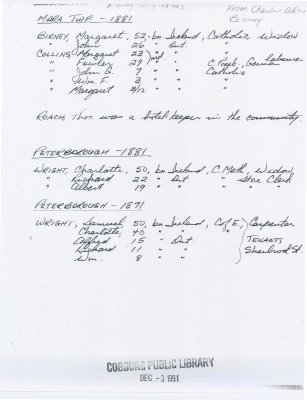 From Charles
Birney
MARA TWP. - 1881
BIRNEY, Margaret, 52, bn Ireland, Catholic, Widow
" John 26 " Ont " "
COLLINS, Margaret 23 " "
" 29 C. Presb., German labourer
" John G. 7 " Catholic
" Wm. F. 3 " "
" Margaret 8/12 " "
ROACH, Thos. was a hotel keeper in the community.
PETERBOROUGH - 1881
WRIGHT, Charlotte, 50, bn Ireland, C. Meth., Widow
" Richard 22 " Ont " Stoc Clerk
" Albert 19 " " "
PETERBOROUGH - 1871
WRIGHT, Samuel, 50, bn Ireland, C of E, Carpenter
Charlotte, 40 " " "
Alfred 15 " Ont TENANTS
Richard 11 " " Sherbrook St.
Wm. 8 " "
COBOURG PUBLIC LIBRARY
DEC - 3 1991